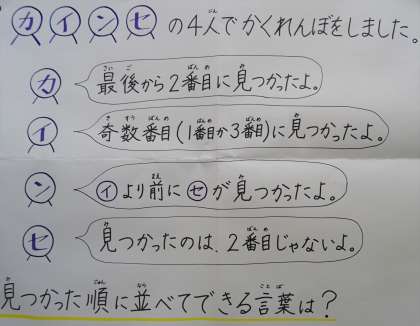 カ イ ン セ の4人でかくれんぼをしました。
カ 最後から2番目に見つかったよ。
イ 奇数番目(1番目か3番目)に見つかったよ。
ン イより前にセが見つかったよ。
セ 見つかったのは、2番目じゃないよ。
見つかった順に並べてできる言葉は?